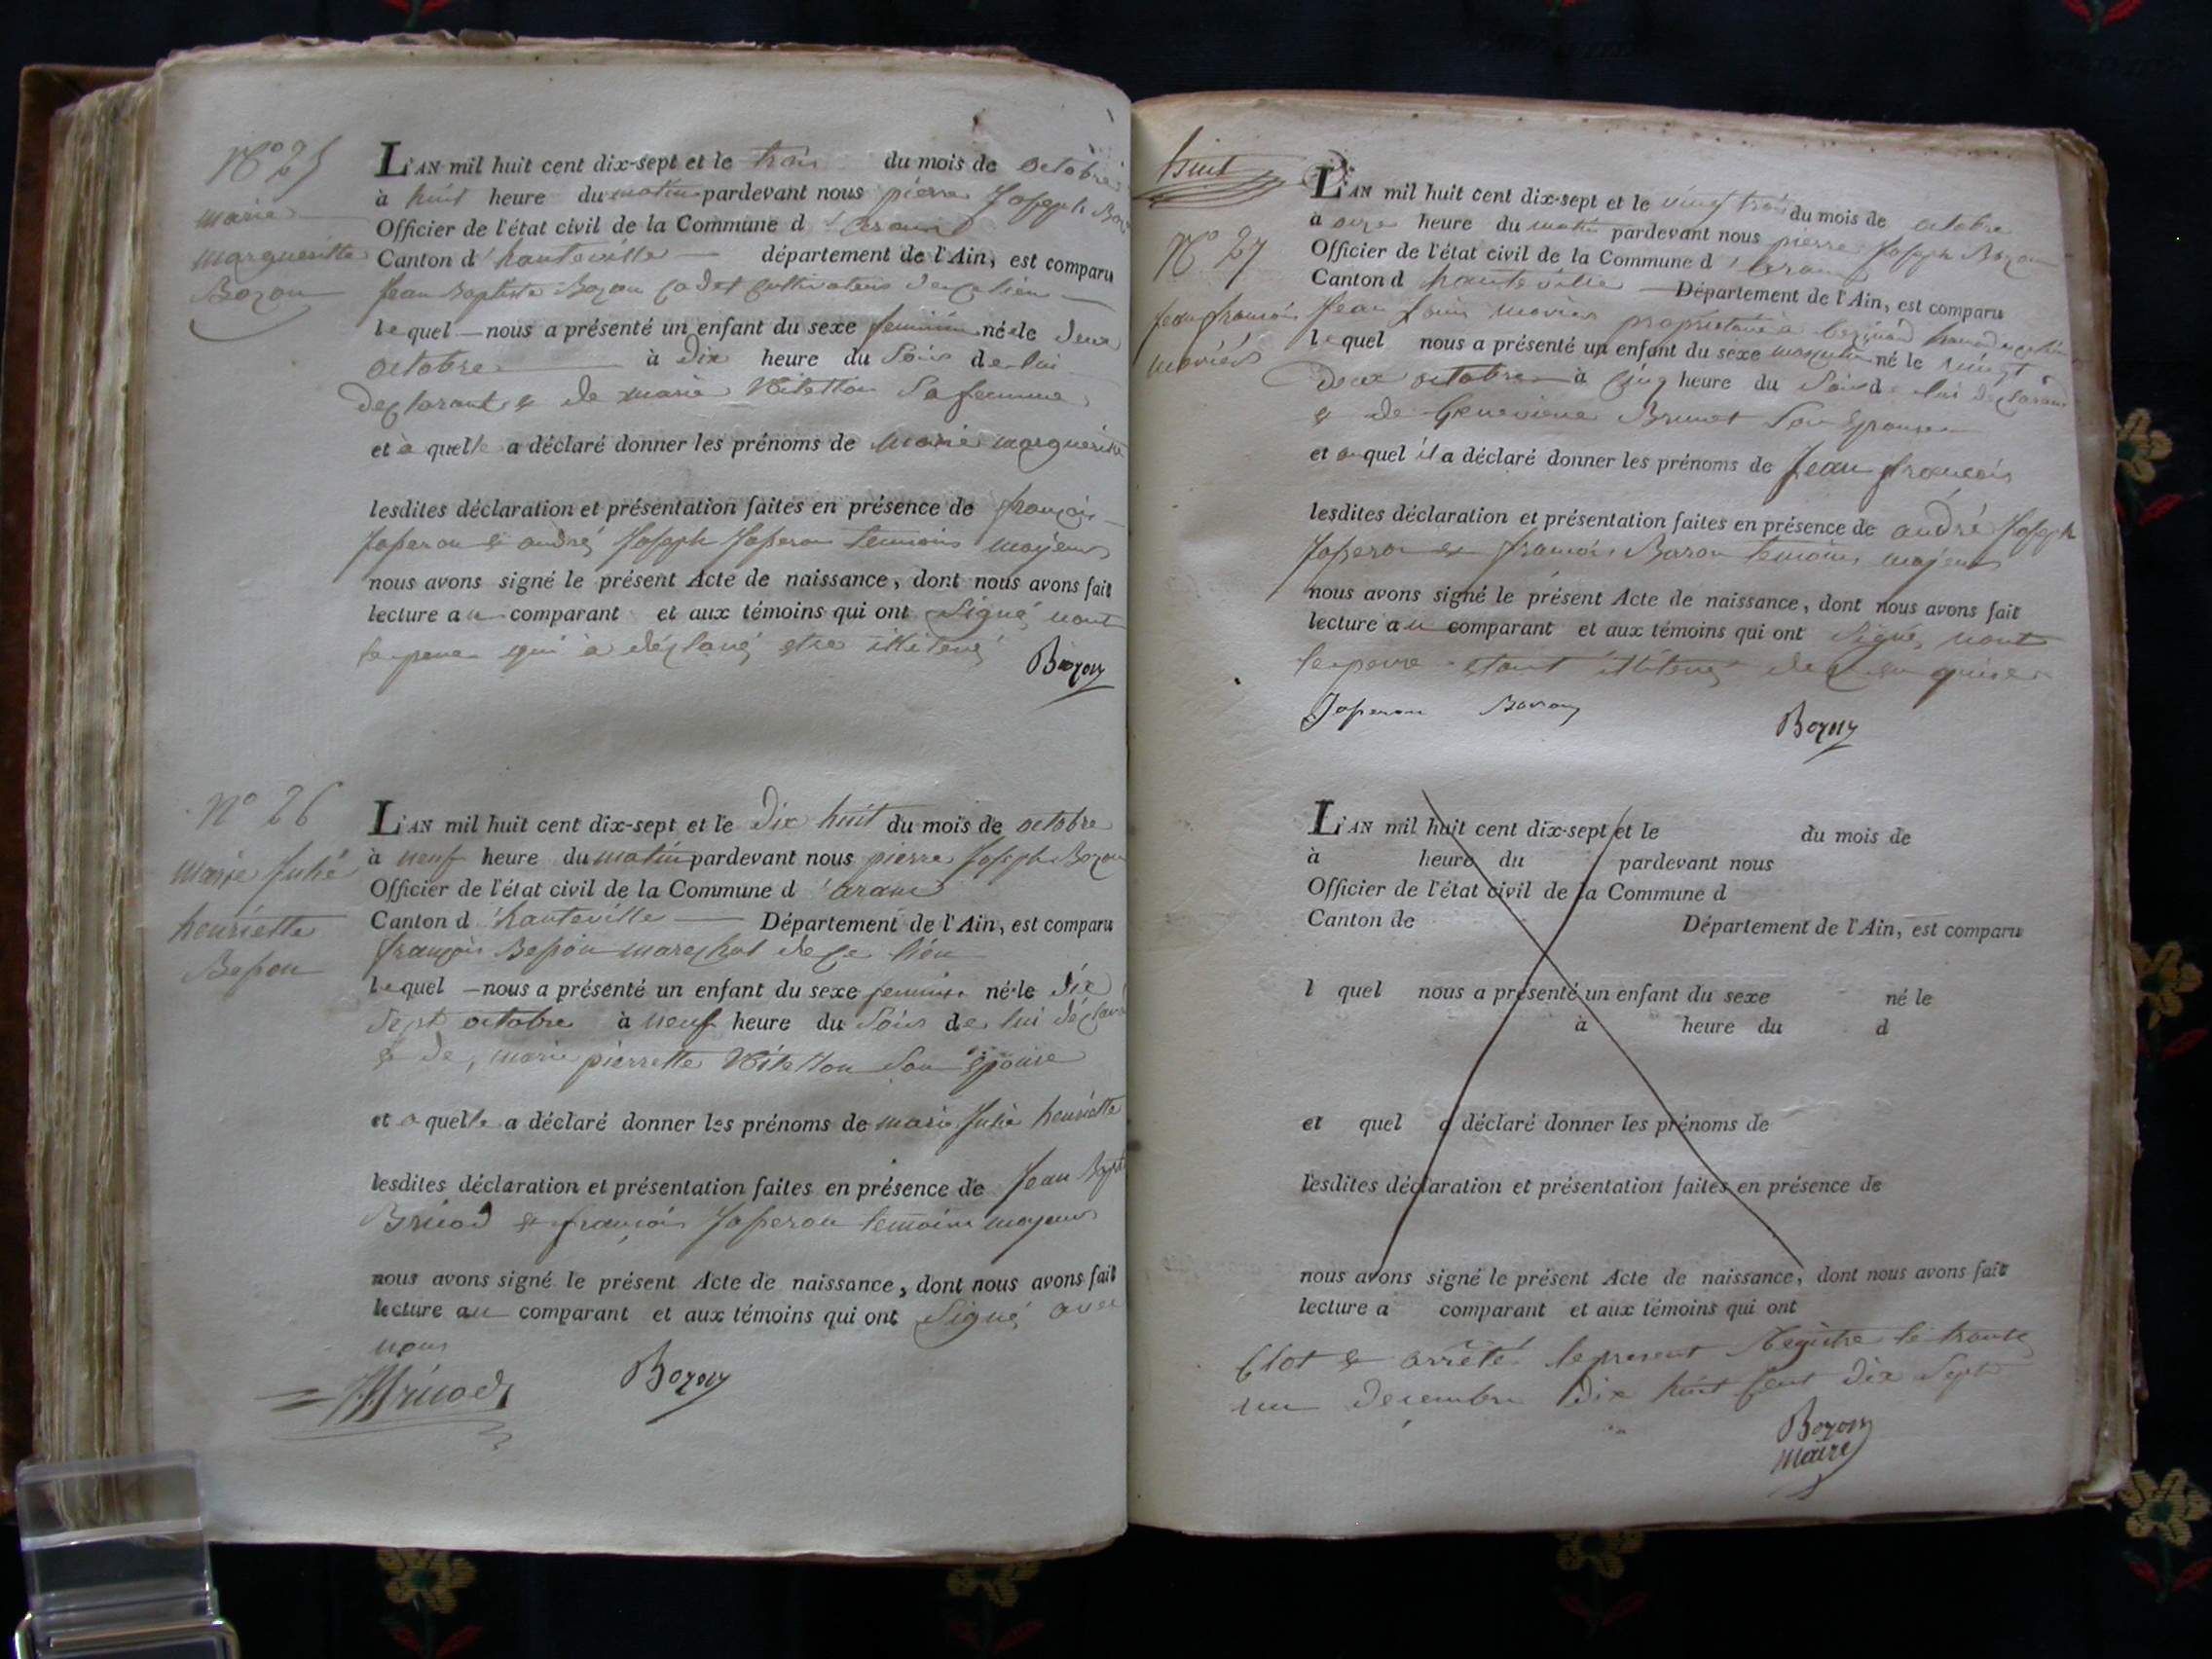 N° 25
marie
margueritte
Bozon
L'AN mil huit cent dix-sept et le trois du mois de octobre
à huit heure du matin pardevant nous pierre Joseph Bozon
Officier de l'état civil de la Commune d'aranc
Canton d'hauteville département de l'Ain, est comparu
Jean Baptiste Bozon cadet cultivateur de ce lieu
lequel nous a présenté un enfant du sexe feminin né le deux
octobre à dix heure du soir de lui
declarant & de marie sa femme
et a quelle a déclaré donner les prénoms de marie margueritte
lesdites déclaration et présentation faites en présence de françois
Joperon & andré Joseph Joperon temoins majeurs
nous avons signé le présent Acte de naissance, dont nous avons fait
lecture au comparant et aux témoins qui ont signé nont
le pere qui a déclaré etre illiteré
Bozon
N° 26
marie Julie
henriette
Bepon
L'AN mil huit cent dix-sept et le dix huit du mois de octobre
à neuf heure du matin pardevant nous pierre Joseph Bozon
Officier de l'état civil de la Commune d'aranc
Canton d'hauteville Département de l'Ain, est comparu
françois Bepon marechal de ce lieu
lequel nous a présenté un enfant du sexe feminin né le dix
sept octobre à neuf heure du soir de lui déclarant
& de marie pierrette son épouse
et a quelle a déclaré donner les prénoms de marie Julie henriette
lesdites déclaration et présentation faites en présence de Jean Bapt
Bruod & françois Joperon temoins majeurs
nous avons signé le présent Acte de naissance, dont nous avons fait
lecture au comparant et aux témoins qui ont signé avec
nous
Bozon
huit
N° 27
jean françois
L'AN mil huit cent dix-sept et le vingt trois du mois de octobre
à onze heure du matin pardevant nous pierre Joseph Bozon
Officier de l'état civil de la Commune d'aranc
Canton d hauteville Département de l'Ain, est comparu
Jean Louis propriétaire à
lequel nous a présenté un enfant du sexe masculin né le vingt
deux octobre à cinq heure du soir d lui declarant
& de Genevieve Brunet son epouse
et auquel il a déclaré donner les prénoms de Jean françois
lesdites déclaration et présentation faites en présence de andré Joseph
Joperon & françois temoins majeurs
nous avons signé le présent Acte de naissance, dont nous avons fait
lecture au comparant et aux témoins qui ont signé, nont
le pere etant illiteré de ce enquis
Joperon
Bozon
L'AN mil huit cent dix-sept et le du mois de
à heure du pardevant nous
Officier de l'état civil de la Commune d
Canton de Département de l'Ain, est comparu
l quel nous a présenté un enfant du sexe né le
à heure du d
et quel a déclaré donner les prénoms de
lesdites déclaration et présentation faites en présence de
nous avons signé le présent Acte de naissance, dont nous avons fait
lecture a comparant et aux témoins qui ont
Clot & arrété le present Registre le trente
un decembre dix huit cent dix sept
Bozon
maire